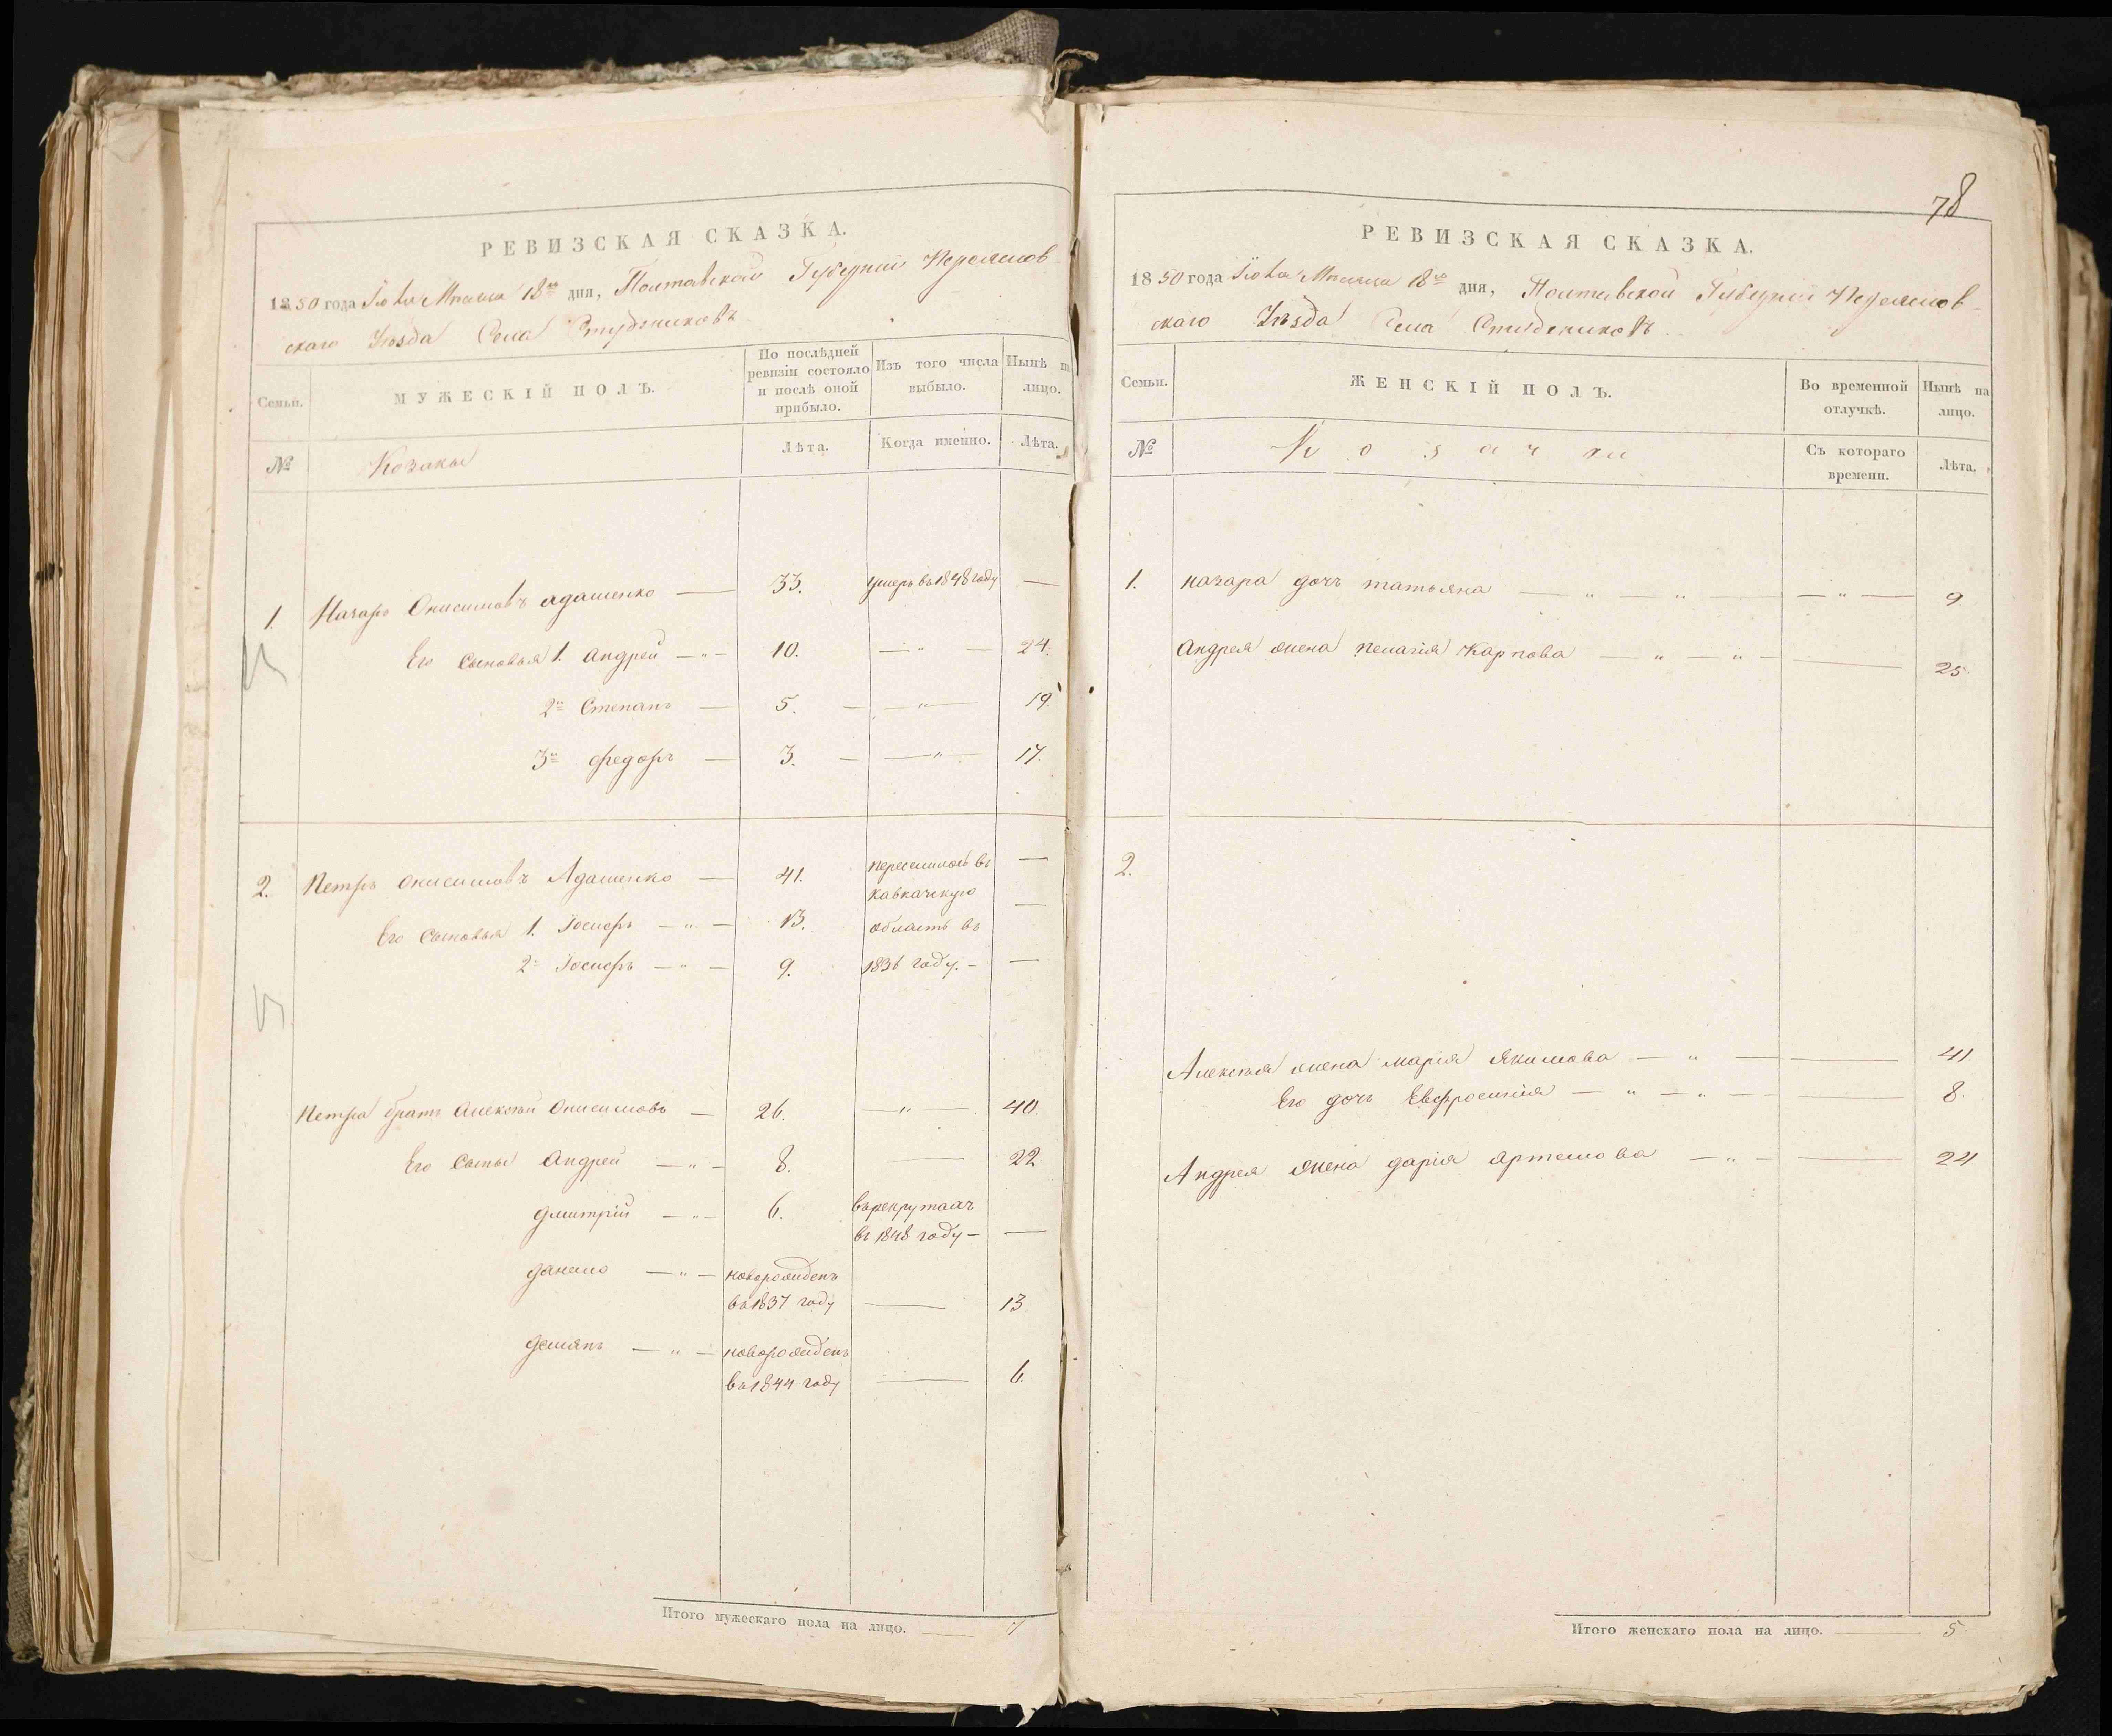 РЕВИЗСКАЯ СКАЗКА.
1850 года Іюля Мѣсяца 18го дня, Полтавской Губерніи Переяслов-
скаго Уѣзда Села Студениковъ
Семьи. МУЖЕСКІЙ ПОЛЪ. По послѣдней ревизіи состояло и послѣ оной прибыло. Изъ того числа выбыло. Нынѣ на лицо.
№ Козаки Лѣта. Когда именно. Лѣта.
1. Назаръ Онисимовъ Адашенко — 33. умеръ въ 1848 году —
Его сыновья 1. Андрей — 10. — " — 24.
2й Степанъ — 5. — " — 19.
3й Федоръ — 3. — " — 17.
2. Петръ Онисимовъ Адашенко — 41. переселился въ —
кавказскую
Его сыновья 1. Іосифъ — " — 13. область въ —
2й Іосифъ — " — 9. 1836 году. — —
Петра братъ Алексѣй Онисимовъ — 26. — " — 40.
Его сыны Андрей — " — 8. — 22.
Дмитрій — " — 6. въ рекрутахъ
въ 1848 году — —
Данило — " — новорожденъ
въ 1837 году — 13.
Демянъ — " — новорожденъ
въ 1844 году — 6.
Итого мужескаго пола на лицо. — 7
78
РЕВИЗСКАЯ СКАЗКА.
1850 года Іюля Мѣсяца 18го дня, Полтавской Губерніи Переяслов-
скаго Уѣзда Села Студениковъ
Семьи. ЖЕНСКІЙ ПОЛЪ. Во временной отлучкѣ. Нынѣ на лицо.
№ Козачки Съ котораго времени. Лѣта.
1. Назара дочь Татьяна — " — " — — " — 9
Андрея жена Пелагія Карпова — " " — — 25.
2.
Алексѣя жена Марія Якимова — " — — 41
Его дочь Евфросинія — " — " — — 8.
Андрея жена Дарія Артемова — " — — 24
Итого женскаго пола на лицо. — 5.